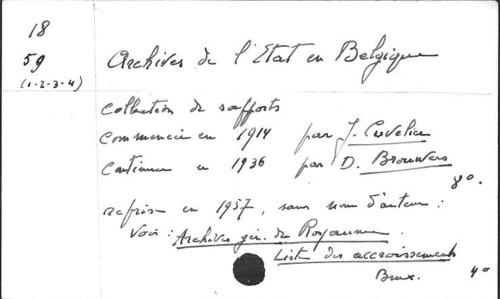 18
59
(1-2-3-4)
Archives de l'Etat en Belgique
Collection de rapports
Commencée en 1914 par J. Cuvelier
Continuée en 1936 par D. Brouwers
8°.
reprise en 1957, sans nom d'auteur :
Voir : Archives gén. du Royaume.
Liste des accroissements
Brux. 4°